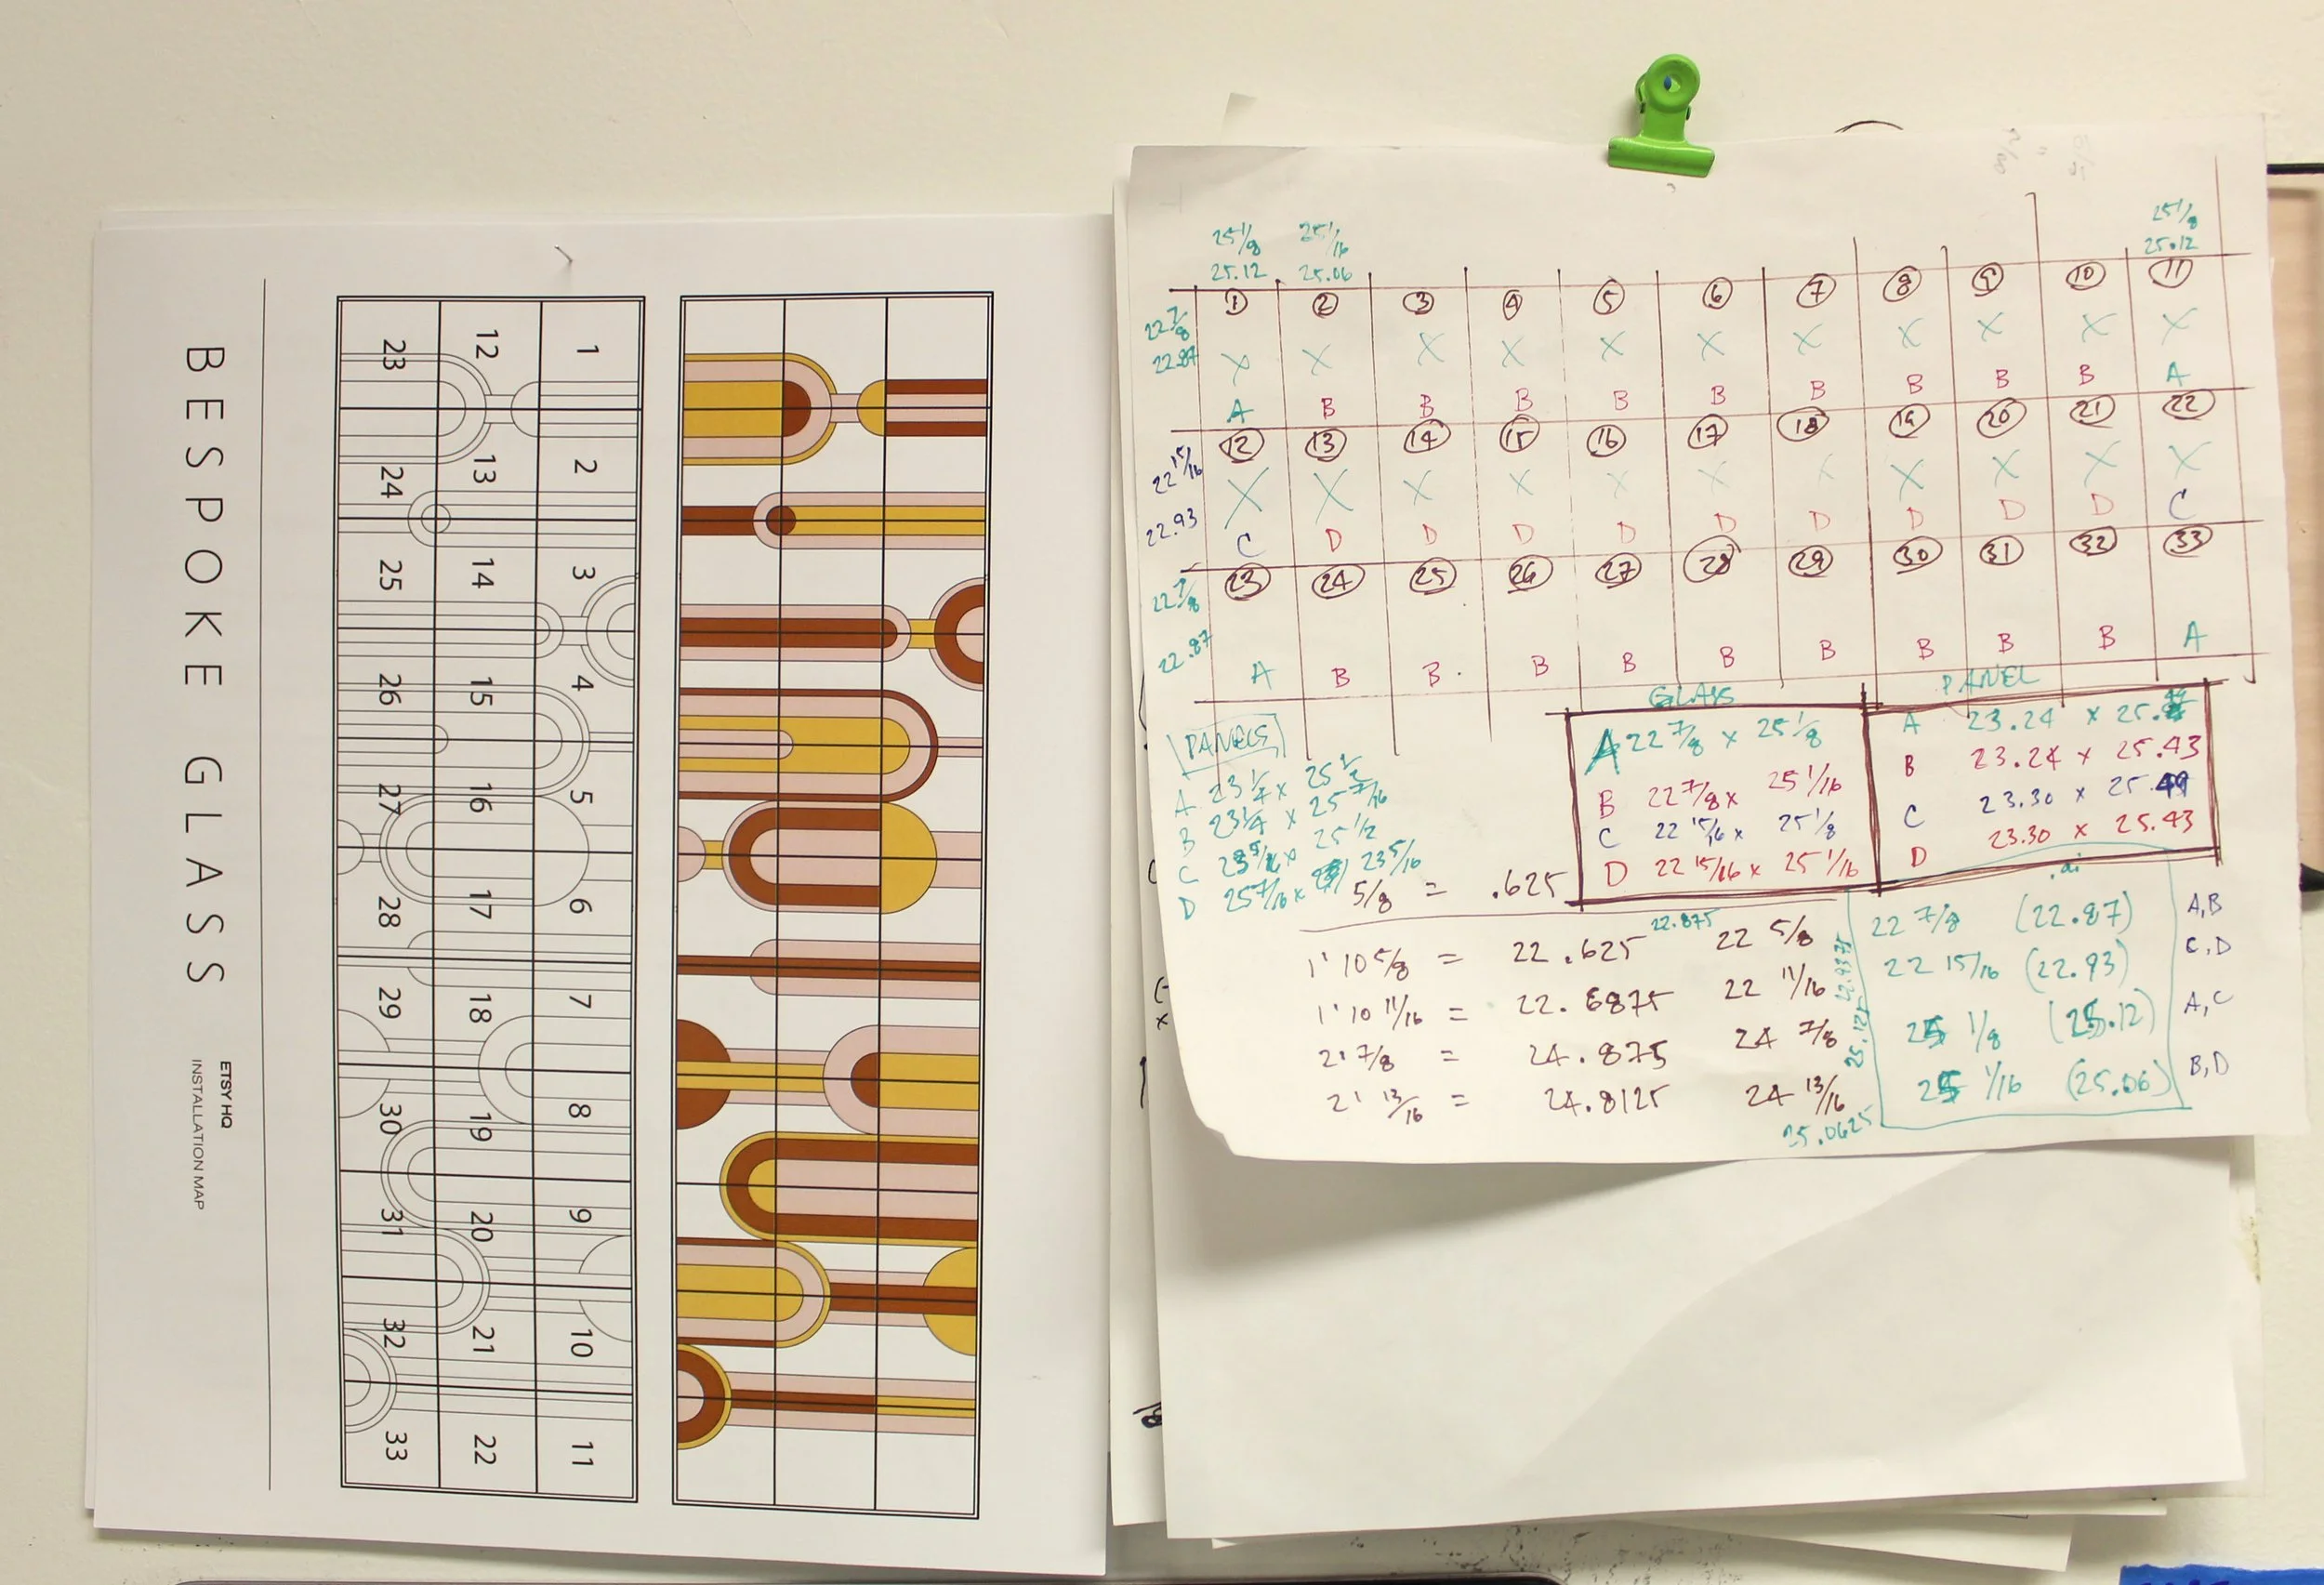 BESPOKE GLASS
ETSY HQ
INSTALLATION MAP
1 2 3 4 5 6 7 8 9 10 11
12 13 14 15 16 17 18 19 20 21 22
23 24 25 26 27 28 29 30 31 32 33
25 1/8 25 1/16 25 1/8
25.12 25.06 25.12
1 2 3 4 5 6 7 8 9 10 11
22 7/8
22.87 X X X X X X X X X X X
A B B B B B B B B B A
12 13 14 15 16 17 18 19 20 21 22
22 15/16 X X X X X X X X X X X
22.93 C D D D D D D D D D C
23 24 25 26 27 28 29 30 31 32 33
22 7/8
22.87 A B B B B B B B B B A
PANELS
A 23 1/4 x 25 1/2
B 23 1/4 x 25 7/16
C x 25 1/2
D 25 7/16 x 23 5/16
GLASS
A 22 7/8 x 25 1/8
B 22 7/8 x 25 1/16
C 22 15/16 x 25 1/8
D 22 15/16 x 25 1/16
PANEL
A 23.24 x
B 23.24 x 25.43
C 23.30 x 25.49
D 23.30 x 25.43
5/8 = .625
22.875
1' 10 5/8 = 22.625 22 5/8
1' 10 11/16 = 22.6875 22 11/16
2' 7/8 = 24.875 24 7/8
2' 13/16 = 24.8125 24 13/16
25.125
25.0625
.ai
22 7/8 (22.87) A,B
22 15/16 (22.93) C,D
25 1/8 (25.12) A,C
25 1/16 (25.06) B,D